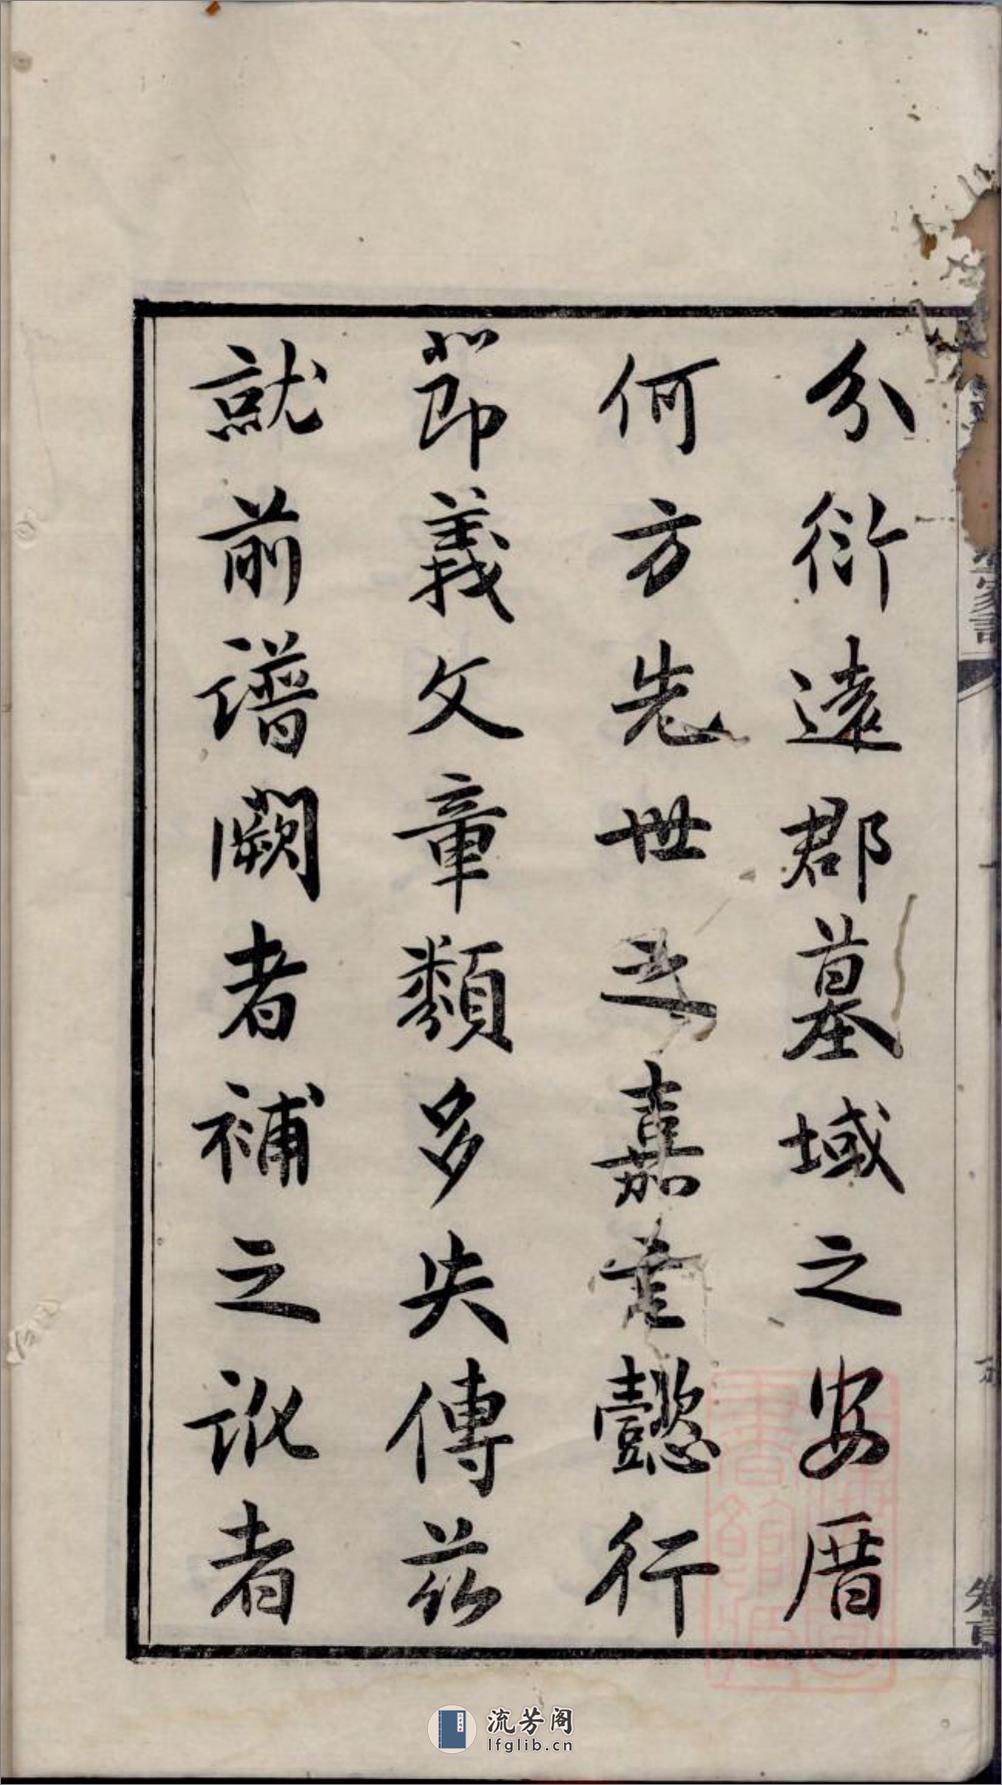 分衍遠郡墓域之安厝
何方先世之嘉言懿行
節義文章類多失傳茲
就前譜闕者補之訛者
流芳阁
lfglib.cn